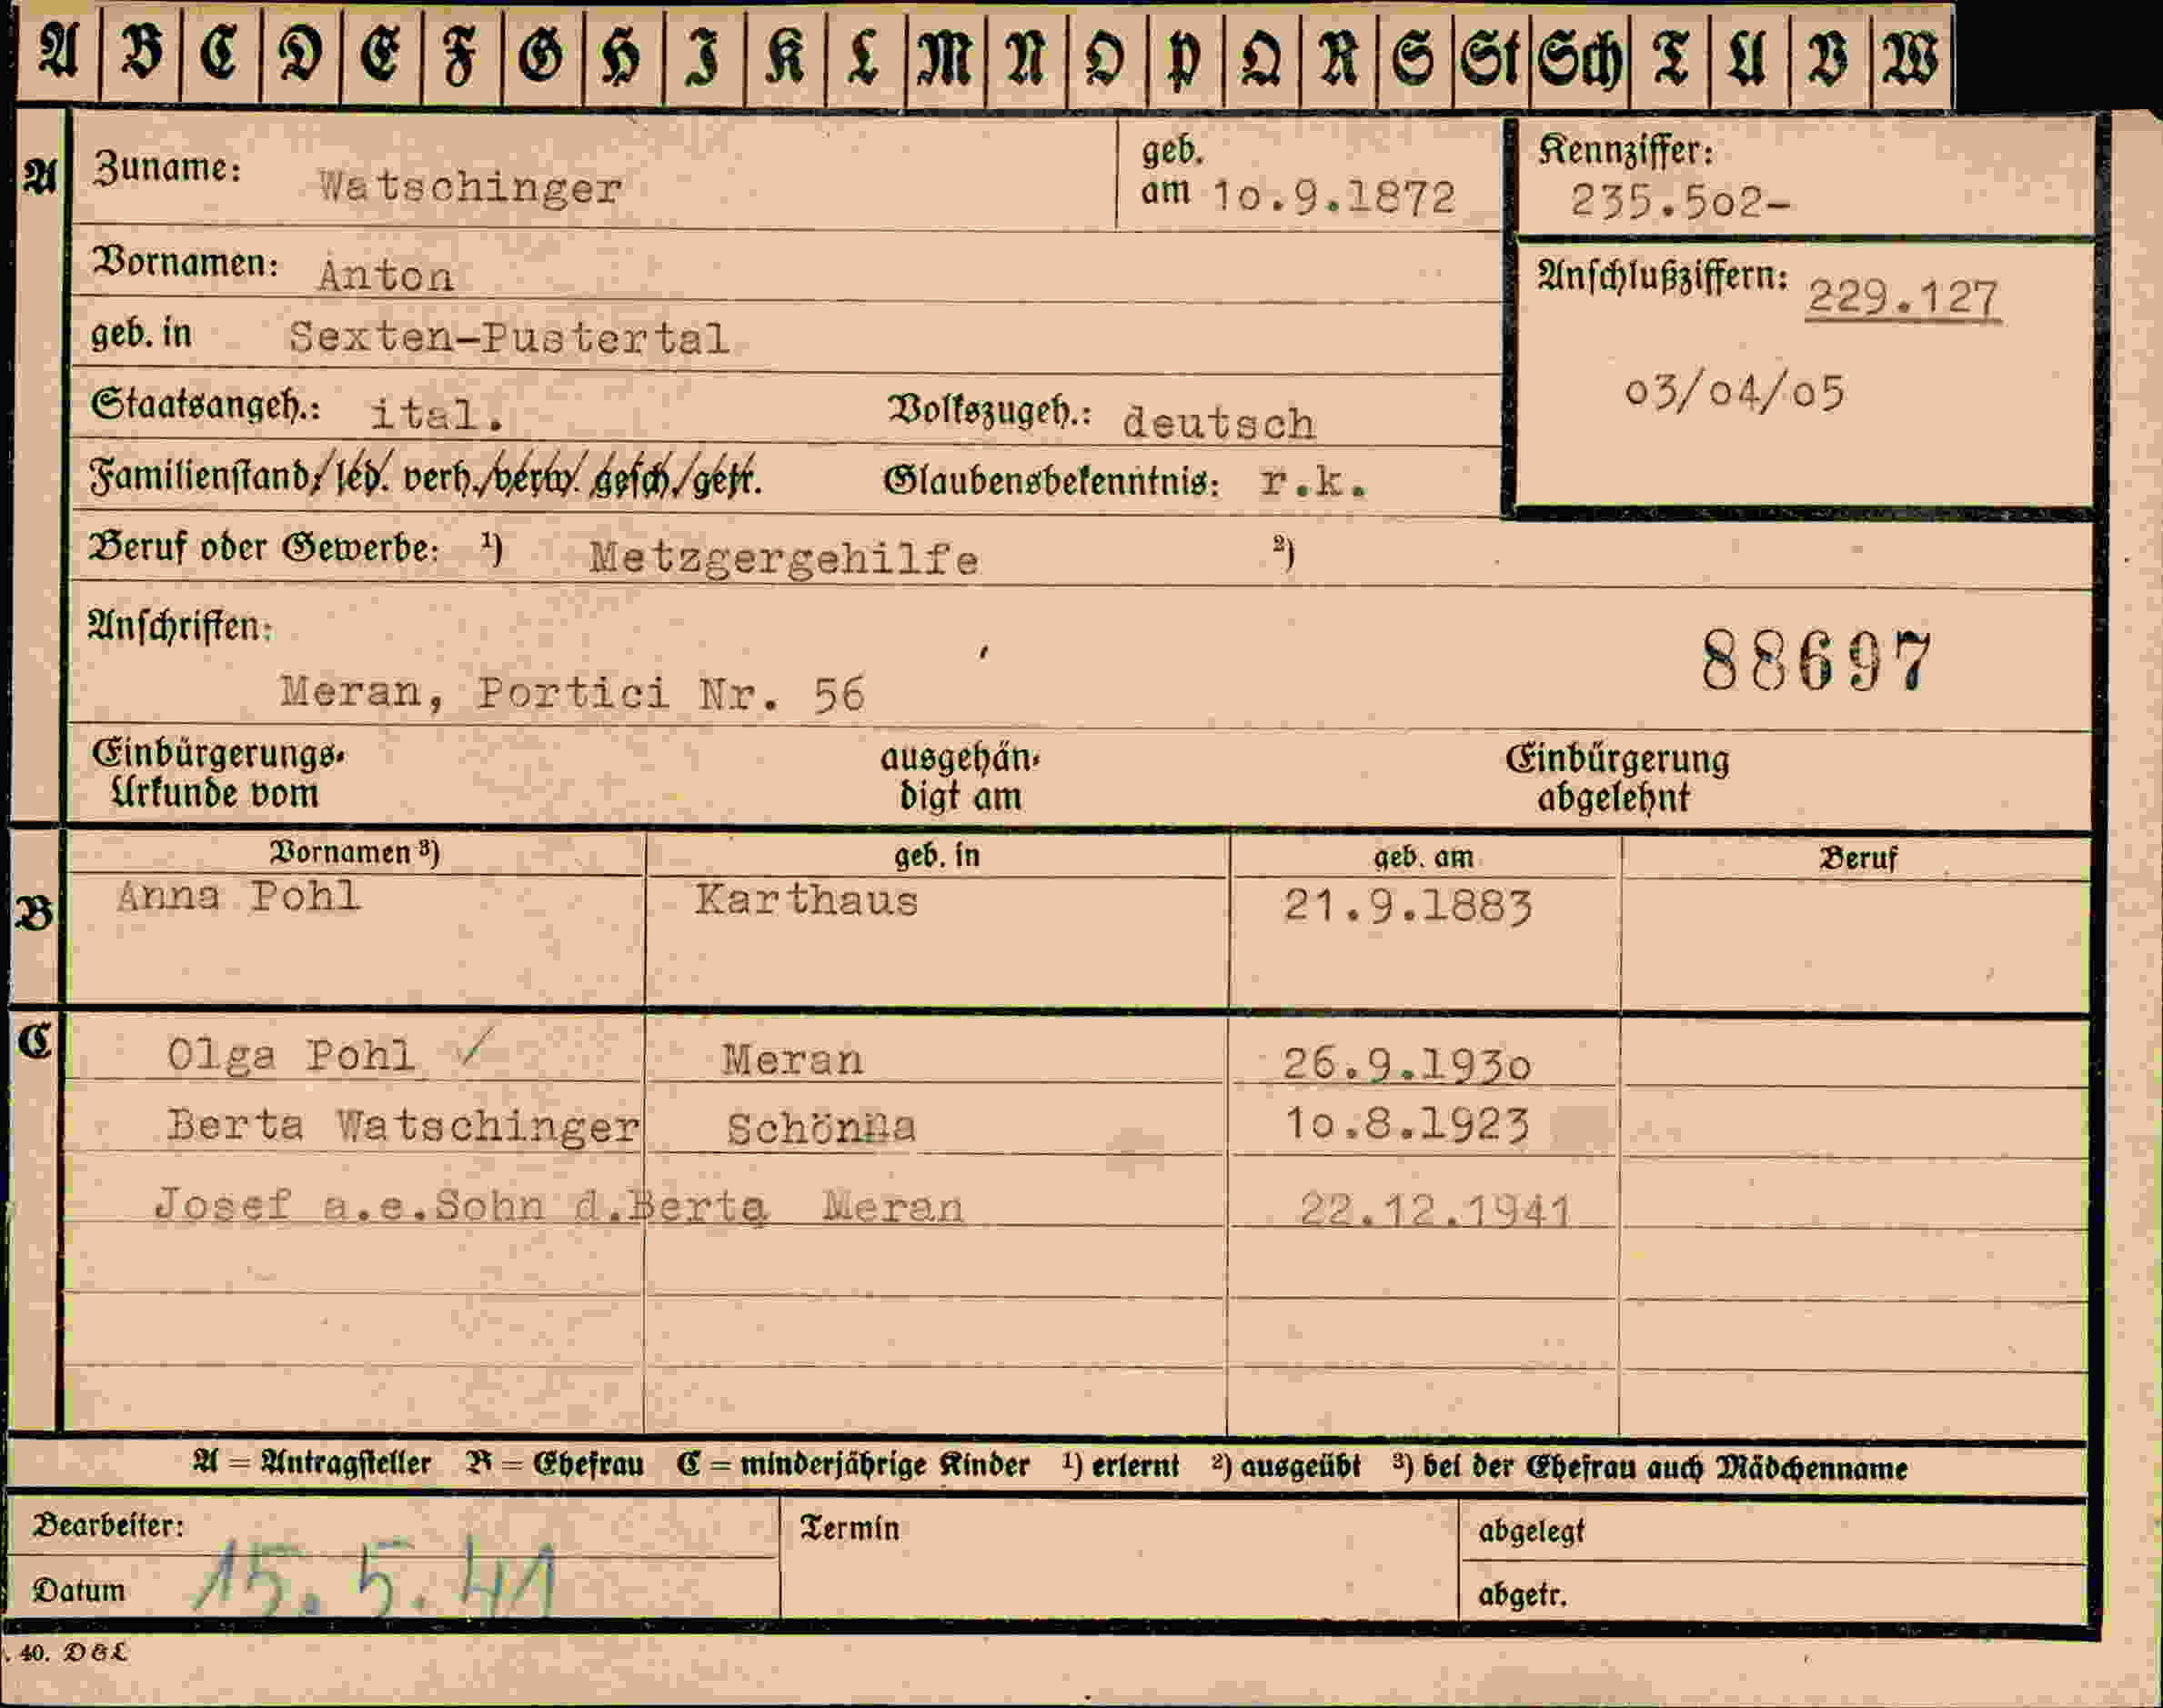 A B C D E F G H I K L M N O P Q R S St Sch T U V W
A Zuname: Watschinger geb. am 10.9.1872 Kennziffer: 235.502-
Vornamen: Anton Anschlußziffern: 229.127
geb. in Sexten-Pustertal
03/04/05
Staatsangeh.: ital. Volkszugeh.: deutsch
Familienstand/led. verh./verw. gesch./getr. Glaubensbekenntnis: r.k.
Beruf oder Gewerbe: ¹) Metzgergehilfe ²)
Anschriften:
88697
Meran, Portici Nr. 56
Einbürgerungs- ausgehän- Einbürgerung
Urkunde vom digt am abgelehnt
Vornamen ³) geb. in geb. am Beruf
B Anna Pohl Karthaus 21.9.1883
C Olga Pohl ✓ Meran 26.9.1930
Berta Watschinger Schönna 10.8.1923
Josef a.e.Sohn d.Berta Meran 22.12.1941
A = Antragsteller B = Ehefrau C = minderjährige Kinder ¹) erlernt ²) ausgeübt ³) bei der Ehefrau auch Mädchenname
Bearbeiter: Termin abgelegt
Datum 15.5.41 abgetr.
. 40. D & L